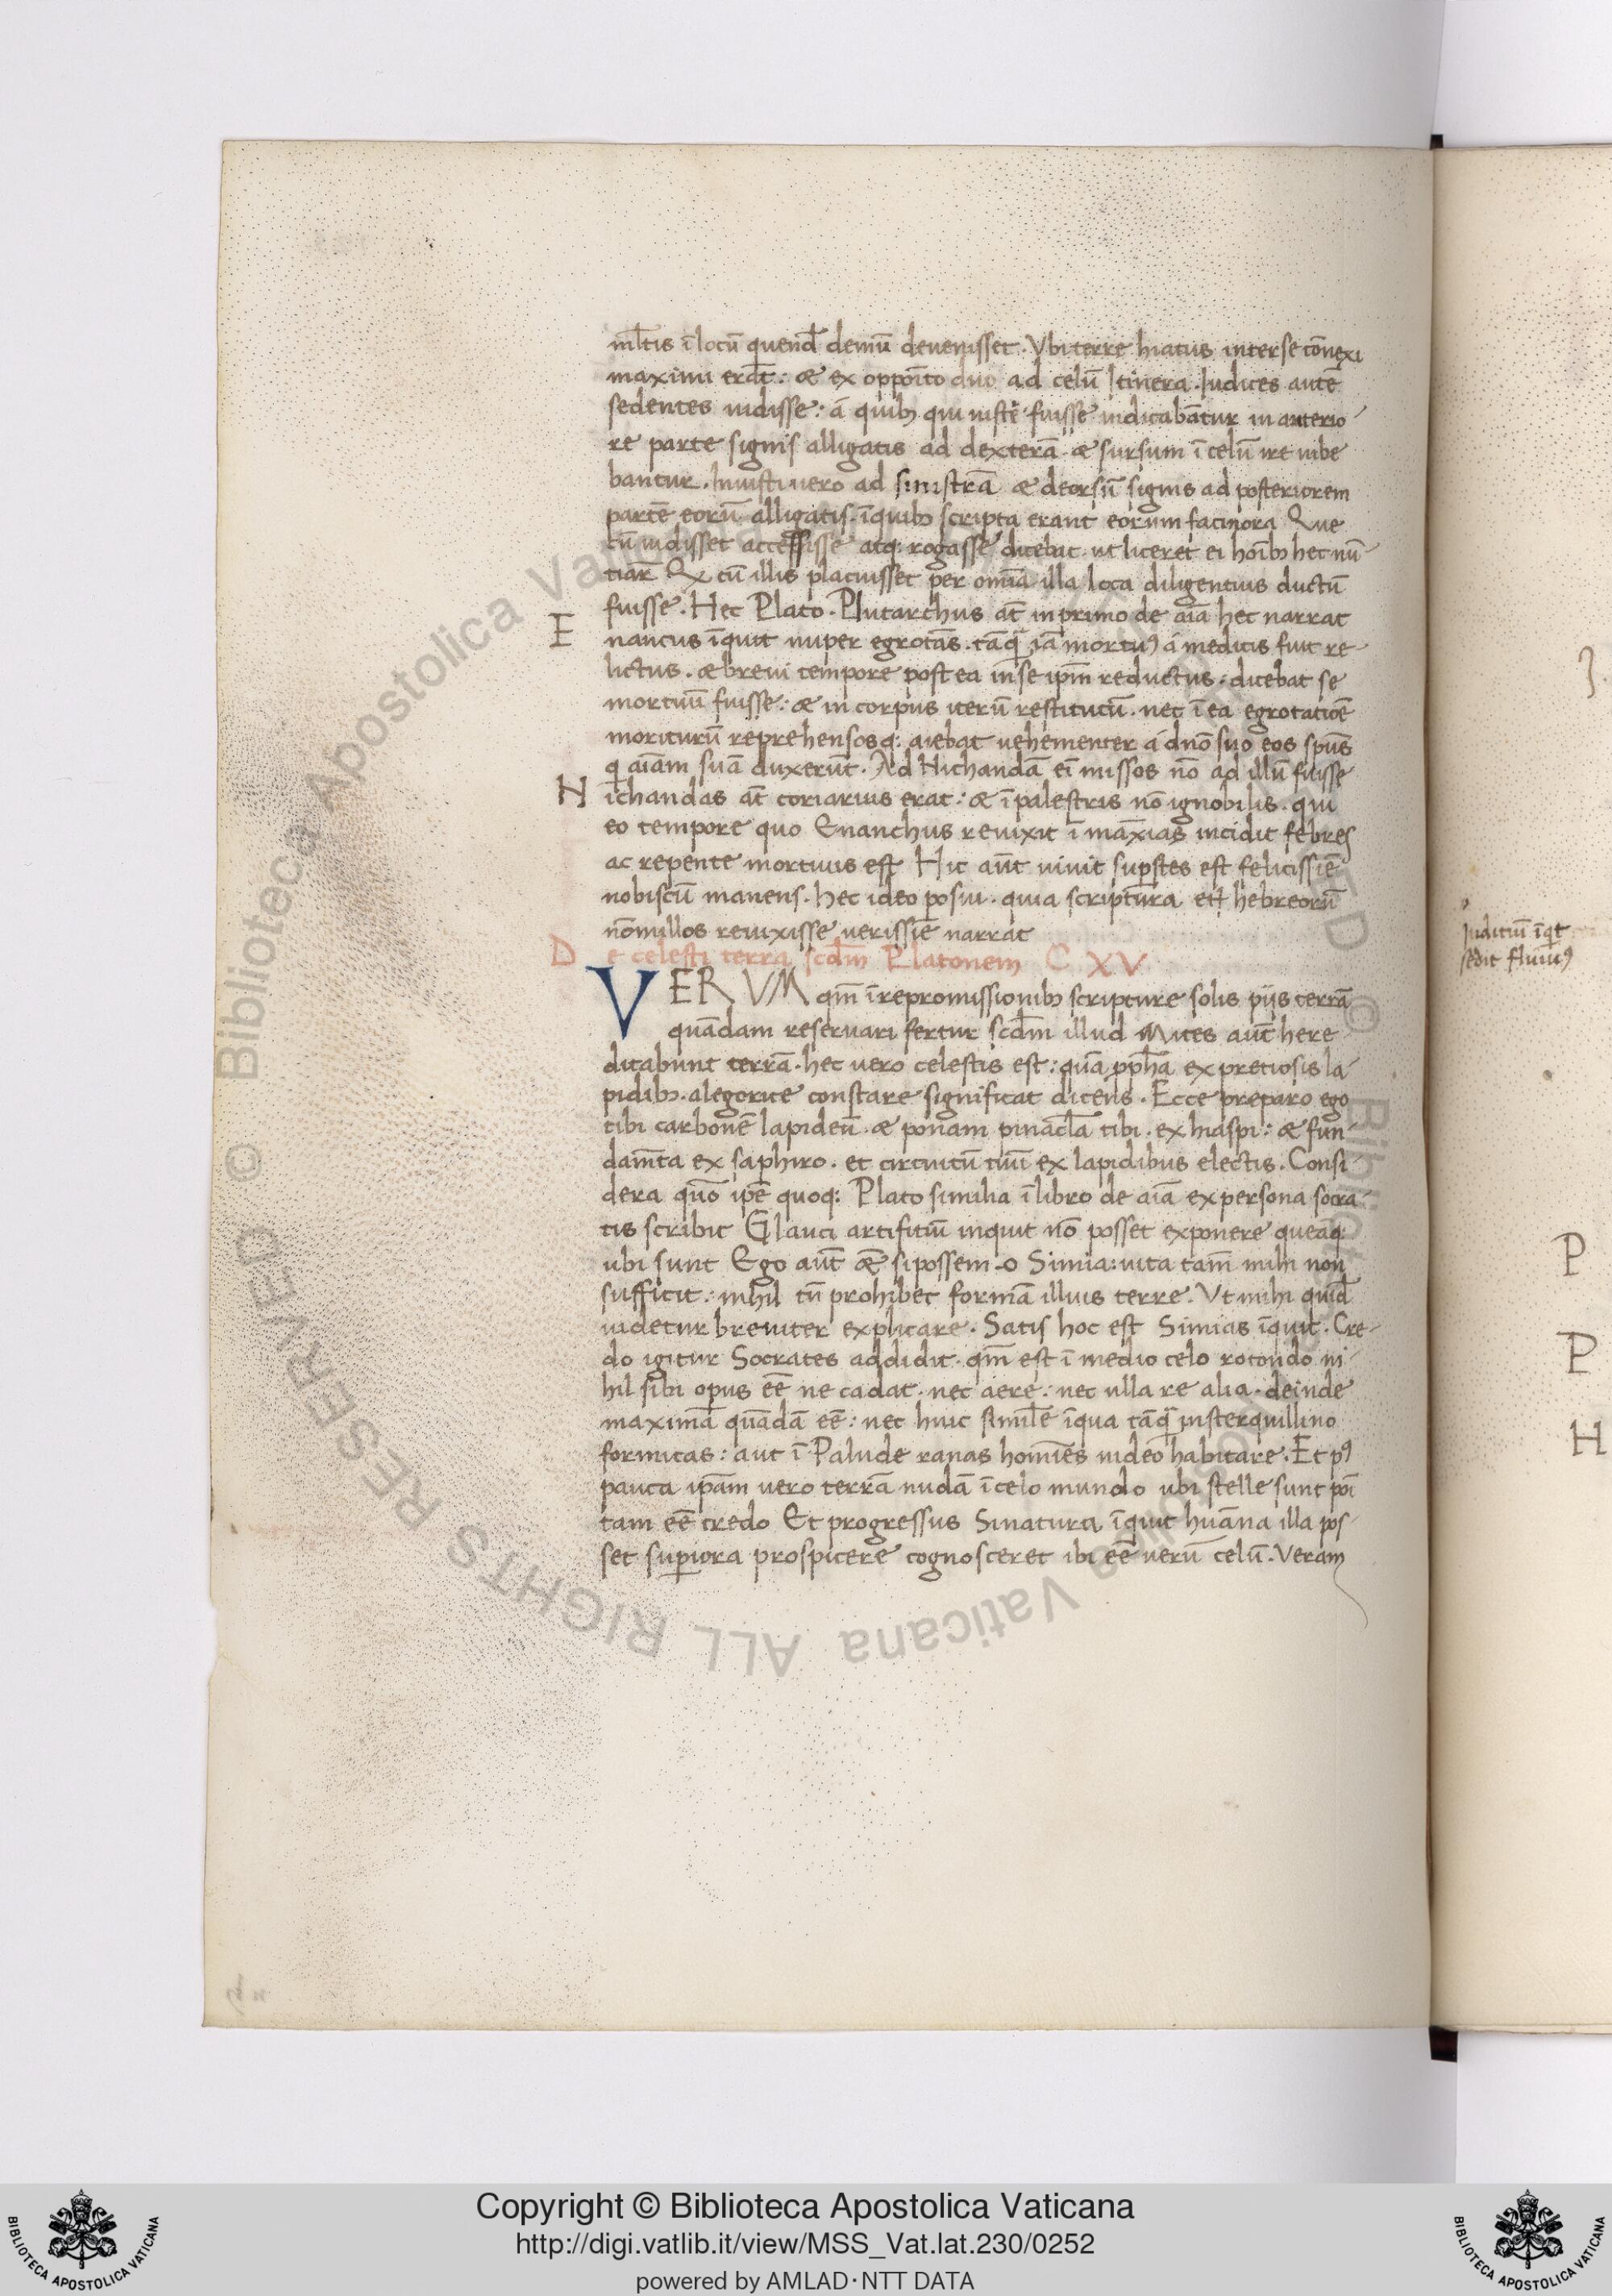 ml̄tis ī locū quend̄ demū devenisset. Vbi terre hiatus inter se cōnexi
maximi erāt: æ ex oppoīto duo ad celū Itinera. Iudices autē
sedentes uidisse: á quibꝫ qui iuste fuisse iudicabātur in anterio-
re parte signis alligatis ad dexterā æ sursum ī celū ire iube
bantur. Iniusti uero ad sinistrā æ deorsū signis ad posteriorem
partē eorū alligatis. īquibꝫ scripta erant eorum facinora Que
cū uidisset accessisse atq: rogasse dicebat ut liceret ei hoībꝫ hec nū-
tiar̄ Qď cū illis placuisset per omīa illa loca diligentius ductū
fuisse. Hec Plato. Plutarchus aт̄ in primo de aīa hec narrat
E nancus īquit nuper egrotās. tāq̄ iā mortuꝯ á medicis fuit re-
lictus. æ brevi tempore post ea in se ipm̄ reductus. dicebat se
mortuū fuisse: æ in corpus iterū restitutū. nec ī ea egrotatiōe
moriturū reprehensosq: aiebat uehementer á dnō suo eos spūs
q aīam suā duxerūt. Ad Nichandā eī missos nō ad illū fuisse
N ichandas aт̄ coriarius erat: æ ī palestris nō ignobilis. qui
eo tempore quo Enanchus reuixit ī māxias incidit febres
ac repente mortuus est Hic aūt uiuit supstes est felicissiē
nobiscū manens. Hec ideo posui. quia scriptura et̄ hebreorū
nōnullos reuixisse uerissiē narrat
D e celesti terra scd̄m Platonem C XV
VERVM qm̄ ī repromissionibꝫ scripture solis piis terrā
quādam reseruari fertur scd̄m illud Mites aūt here
ditabunt terrā. hec uero celestis est: quā pph̄a ex pretiosis la-
pidibꝫ. alegorice constare significat dicēns. Ecce preparo ego
tibi carbonē lapideū. æ ponam pinacl̄a tibi. ex hiaspi: æ fun-
damīta ex saphiro. et circuitū tuū ex lapidibus electis. Consi-
dera quō ipē quoq: Plato similia ī libro de aīa ex persona socra-
tis scribit Glauci artifitiū inquit nō posset exponere queāq:
ubi sunt Ego aūt ǣ si possem o Simia: uita tam̄ mihi non
sufficit: nihil tn̄ prohibet formā illius terre. Vt mihi quid̄
uidetur breuiter explicare. Satis hoc est Simias īquit. Cre-
do igitur Socrates addidit. qm̄ est ī medio celo rotondo ni-
hil sibi opus eē ne cadat. nec aere: nec ulla re alia. deinde
maximā quādā eē: nec huic simil̄e īqua tāq̄ insterquillino
formicas: aut ī Palude ranas homiēs uideo habitare. Et pꝯ
pauca ipām uero terrā nudā ī celo mundo ubi stelle sunt poī
tam eē credo Et progressus Si natura īquit huāna illa pos-
set supiora prospicere cognosceret ibi eē uerū celū. Veram
Iuditiū īqt
sedit fluuiꝯ
P
P
H
© Biblioteca Apostolica Vaticana ALL RIGHTS RESERVED
BIBLIOTECA APOSTOLICA VATICANA
Copyright © Biblioteca Apostolica Vaticana
http://digi.vatlib.it/view/MSS_Vat.lat.230/0252
powered by AMLAD·NTT DATA
BIBLIOTECA APOSTOLICA VATICANA